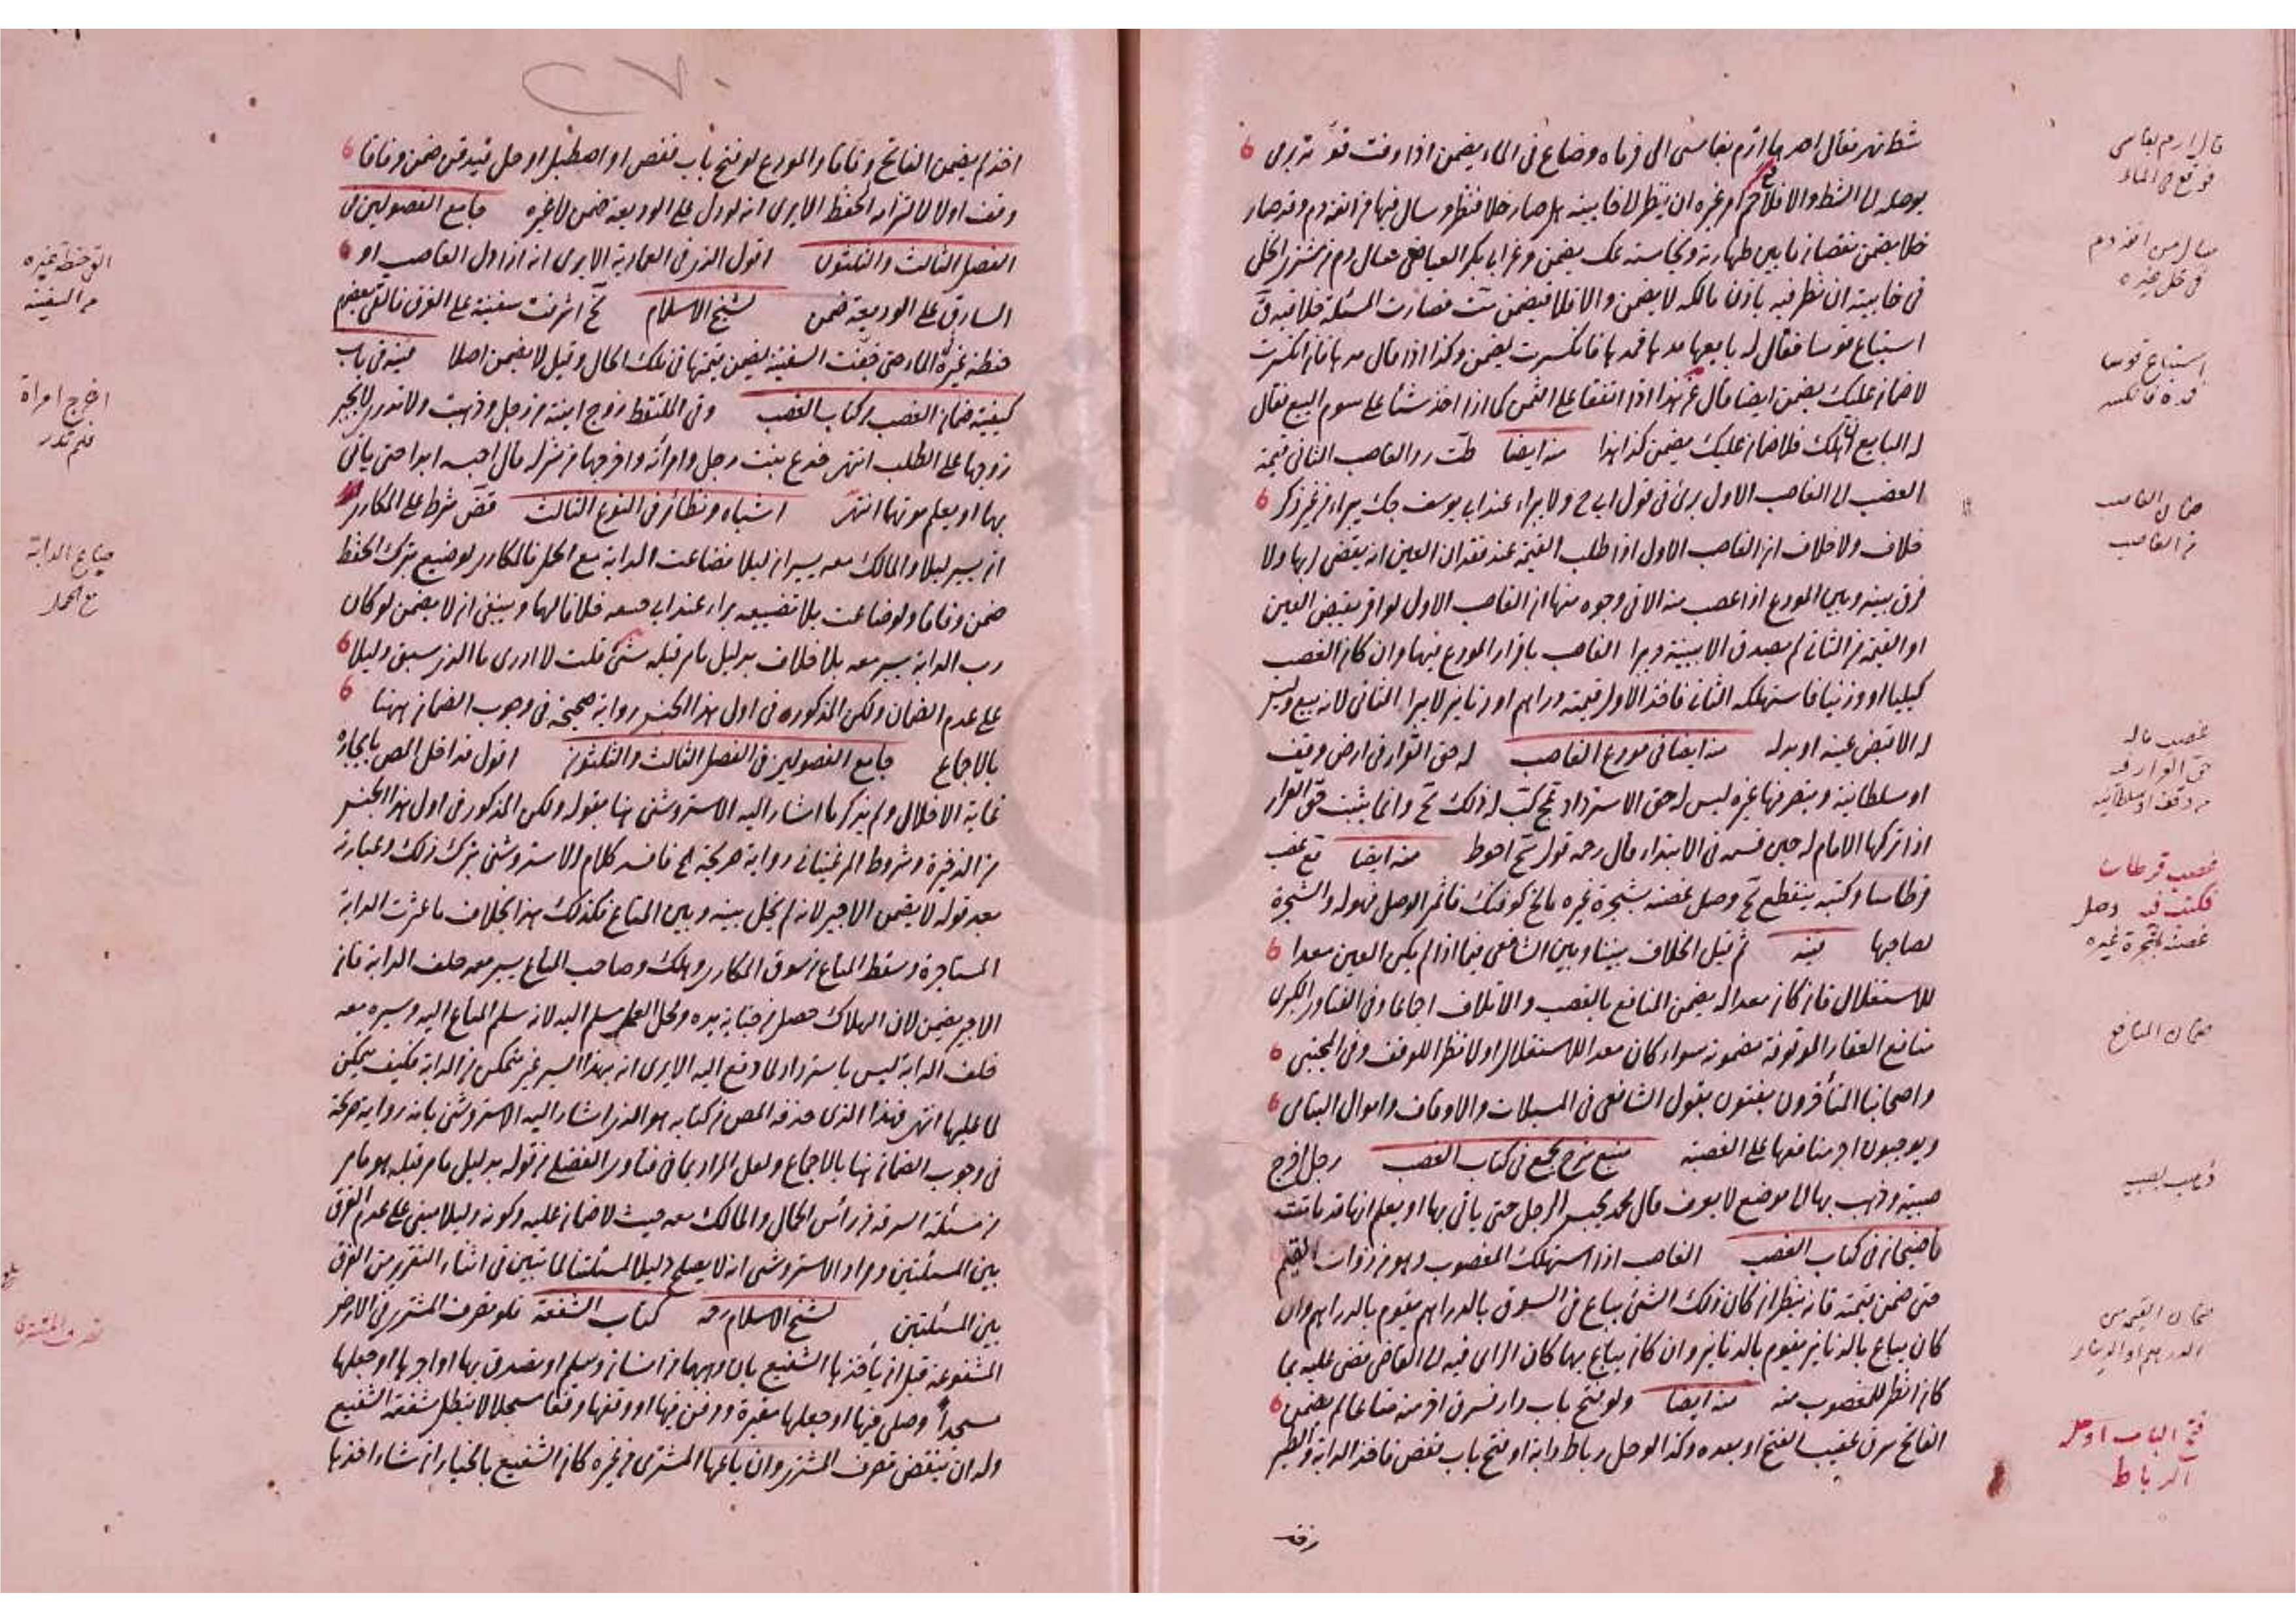 شط نهر فقال احدهما ارم بفأسى الى فرماه وضاع فى الماء يضمن اذا وقت قوته يرى
يوصله الى الشط والا فلا امر غيره ان ينظر الى خابيته هل صار خلا فنظر وسال فيها من انفه دم وقد صار
خلا يضمن نقصان ما بين طهارته ونجاسته عك يضمن وعن ابى بكر العياضى سال دم من مشترى الخل
فى خابيته ان نظر فيه باذن مالكه لا يضمن والا فلا فيضمن فصارت المسئلة خلافية
استباع قوسا فقال له بايعها مدها فمدها فانكسرت يضمن وكذا اذا قال مدها فان انكسرت
لا ضمان عليك يضمن ايضا قال هذا اذا اتفقا على الثمن كما اذا اخذ شئا على سوم البيع فقال
له البايع ان هلك فلا ضمان عليك يضمن كذا هذا منه ايضا رد الغاصب الثانى قيمة
الغصب الى الغاصب الاول برئ فى قول ابى ح ولا يبراء عند ابى يوسف يبراء من غير ذكر
خلاف ولا خلاف ان الغاصب الاول اذا طلب القيمة عند فقدان العين انه يقضى بها ولا
فرق بينه وبين المودع اذا غصب منه الا فى وجوه منها ان الغاصب الاول لو اقر بقبض العين
او القيمة من الثانى لم يصدق الا ببينة ويبرا الغاصب باقرار المودع فيها وان كان الغصب
كيليا او وزنيا فاستهلكه الثانى فاخذ الاول قيمته دراهم او دنانير لا يبرا الثانى لانه بيع وليس
له الا قبض عينه او بدله منه ايضا فى مودع الغاصب له حق القرار فى ارض وقف
او سلطانية ويتصرفها غيره ليس له حق الاسترداد كتب له ذلك وانما يثبت حق القرار
اذا تركها الامام له حين قسمه فى الابتداء قال رحمه قول احوط منه ايضا غصب
قرطاسا وكتبه ينقطع وصل غصنه بشجرة غيره فاثمر الوصل فهو له والشجرة
لصاحبها قنيه ثم قيل الخلاف بيننا وبين الشافعى فيما اذا لم يكن العين معدا
للاستغلال فان كان معدا له يضمن المنافع بالغصب والاتلاف اجماعا وفى الفتاوى الكبرى
منافع العقار الموقوفة مضمونه سواء كان معدا للاستغلال اولا نظرا للوقف وفى المجتبى
واصحابنا المتأخرون يفتون بقول الشافعى فى المسبلات والاوقاف واموال اليتامى
ويوجبون اجر منافعها على الغصبة منبع شرح مجمع فى كتاب الغصب رجل اخرج
صبية وذهب بها الى موضع لا يعرف قال محمد يحبس الرجل حتى ياتى بها او يعلم انها قد ماتت
قاضيخان فى كتاب الغصب الغاصب اذا استهلك المغصوب وهو من ذوات القيم
حتى ضمن قيمته فانه ينظر ان كان ذلك الشئ يباع فى السوق بالدراهم يقوم بالدراهم وان
كان يباع بالدنانير يقوم بالدنانير وان كان يباع بهما كان الراى فيه الى القاضى يقضى عليه بما
كان انظر للمغصوب منه منه ايضا ولو فتح باب دار فسرق اخر منه متاعا لم يضمن
الفاتح سرق عقيب الفتح او بعده وكذا لو حل رباط دابة او فتح باب قفص فاخذ الدابة والطير
قال ارم بفاسى
فوقع فى الماء
سال من انفه دم
فى خل غيره
استباع قوسا
فمده فانكسر
ضمان الغاصب
من الغاصب
غصب ماله
حق القرار فيه
من وقف او سلطانيه
غصب قرطاسا
فكتب فيه وصل
غصنه بشجرة غيره
ضمان المنافع
ذهب بصبية
ضمان القيمه من
الدراهم او الدينار
فتح الباب او حل
الرباط
اخذ لم يضمن الفاتح وفاقا والمودع لو فتح باب قفص او اصطبل او حل قيد قن ضمن وفاقا
وقف اولا لالتزامه الحفظ الا يرى انه لو دل على الوديعة ضمن لا غيره جامع الفصولين فى
الفصل الثالث والثلثون اقول الذى فى العمادية الا يرى انه اذا دل الغاصب او
السارق على الوديعة ضمن لشيخ الاسلام اشرفت سفينة على الغرق فالقى بعضهم
حنطة غيره فى الماء حتى خفت السفينة يضمن قيمتها فى تلك الحال وقيل لا يضمن اصلا قنيه فى باب
كيفية ضمان الغصب من كتاب الغصب وفى الملتقط زوج ابنته من رجل وذهبت ولا تدرى لا يجبر
زوجها على الطلب انتهى خدع بنت رجل وامرأته واخرجها من منزله قال احبسه ابدا حتى ياتى
بها او يعلم موتها انتهى اشباه ونظائر فى النوع الثالث شرط على المكارى
ان يسير ليلا والمالك معه يسيران ليلا فضاعت الدابة مع الحمل فالمكارى لو ضيع بترك الحفظ
ضمن وفاقا ولو ضاعت بلا تضييعه براء عند ابى حنيفه خلافا لهما وينبغى ان لا يضمن لو كان
رب الدابة يسير معه بلا خلاف بدليل ما مر قبله قلت لا ادرى ما الذى سبق دليلا
على عدم الضمان ولكن المذكوره فى اول هذا الجنس رواية صحيحة فى وجوب الضمان ههنا
بالاجماع جامع الفصولين فى الفصل الثالث والثلثون اقول قد اخل المص بايجازه
غاية الاخلال ولم يذكر ما اشار اليه الاستروشنى هنا بقوله ولكن المذكور فى اول هذا الجنس
من الذخيرة وشروط المرغينانى رواية صريحة الخ فافسد كلام الاستروشنى بترك ذلك وعبارته
بعد قوله لا يضمن الاجير لانه لم يخل بينه وبين المتاع فكذلك هذا بخلاف ما عثرت الدابة
المستاجرة وسقط المتاع من سوق المكارى وهلك وصاحب المتاع يسير معه خلف الدابة فان
الاجير يضمن لان الهلاك حصل من جناية يده ومحل العمل مسلم اليه لانه سلم المتاع اليه وسيره معه
خلف الدابة ليس باسترداد لما دفع اليه الا يرى انه بهذا السير غير متمكن من الدابة فكيف يتمكن
لما عليها انتهى فهذا الذى حذفه المص من كتابه هو الذى اشار اليه الاستروشنى بانه رواية صريحة
فى وجوب الضمان هنا بالاجماع ولعل المراد بما فى فتاوى الفضلى من قوله بدليل ما مر قبله هو ما مر
من مسئلة السرقة من رأس الحمال والمالك معه حيث لا ضمان عليه وكونه دليلا مبنى على عدم الفرق
بين المسئلتين ومراد الاستروشنى انه لا يصلح دليلا لمسئلتنا لما تبين فى اثناء التقرير من الفرق
بين المسئلتين لشيخ الاسلام رحمه كتاب الشفعة فلو تصرف المشترى فى الارض
المشفوعة قبل ان يأخذها الشفيع بان وهبها من انسان وسلم او تصدق بها او اجرها او جعلها
مسجدا وصلى فيها او جعلها مقبرة ودفن فيها او وقفها وقفا مسجلا لا تبطل شفعة الشفيع
وله ان ينقض تصرف المشترى وان باعها المشترى من غيره كان الشفيع بالخيار ان شاء اخذها
القى حنطة غيره
من السفينة
اخرج امراة
فلم تدر
ضياع الدابة
مع الحمل
تصرف المشترى